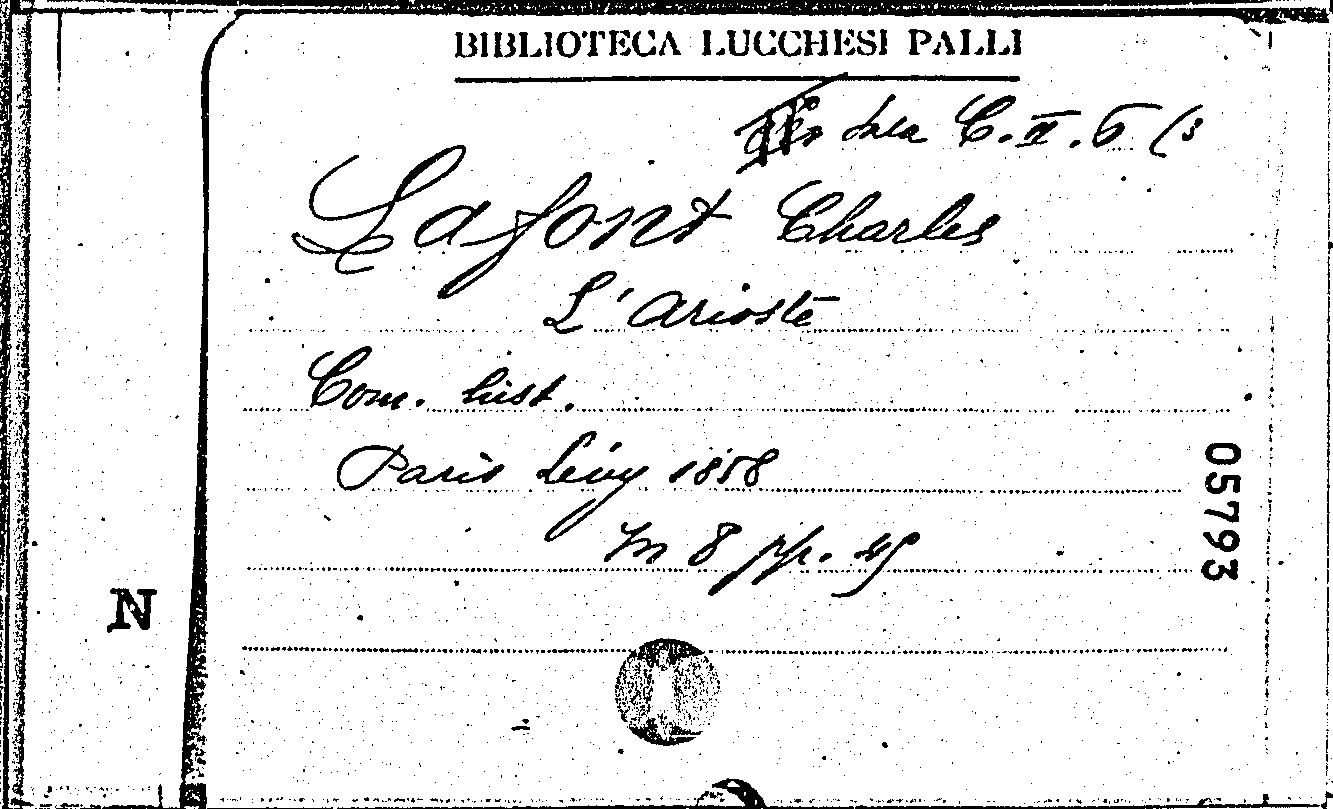 BIBLIOTECA LUCCHESI PALLI
Sala C. II. 6 (3
Lafont Charles
L'Arioste
Com. hist.
Paris Lévy 1858
in 8 pp. 49
05793
N